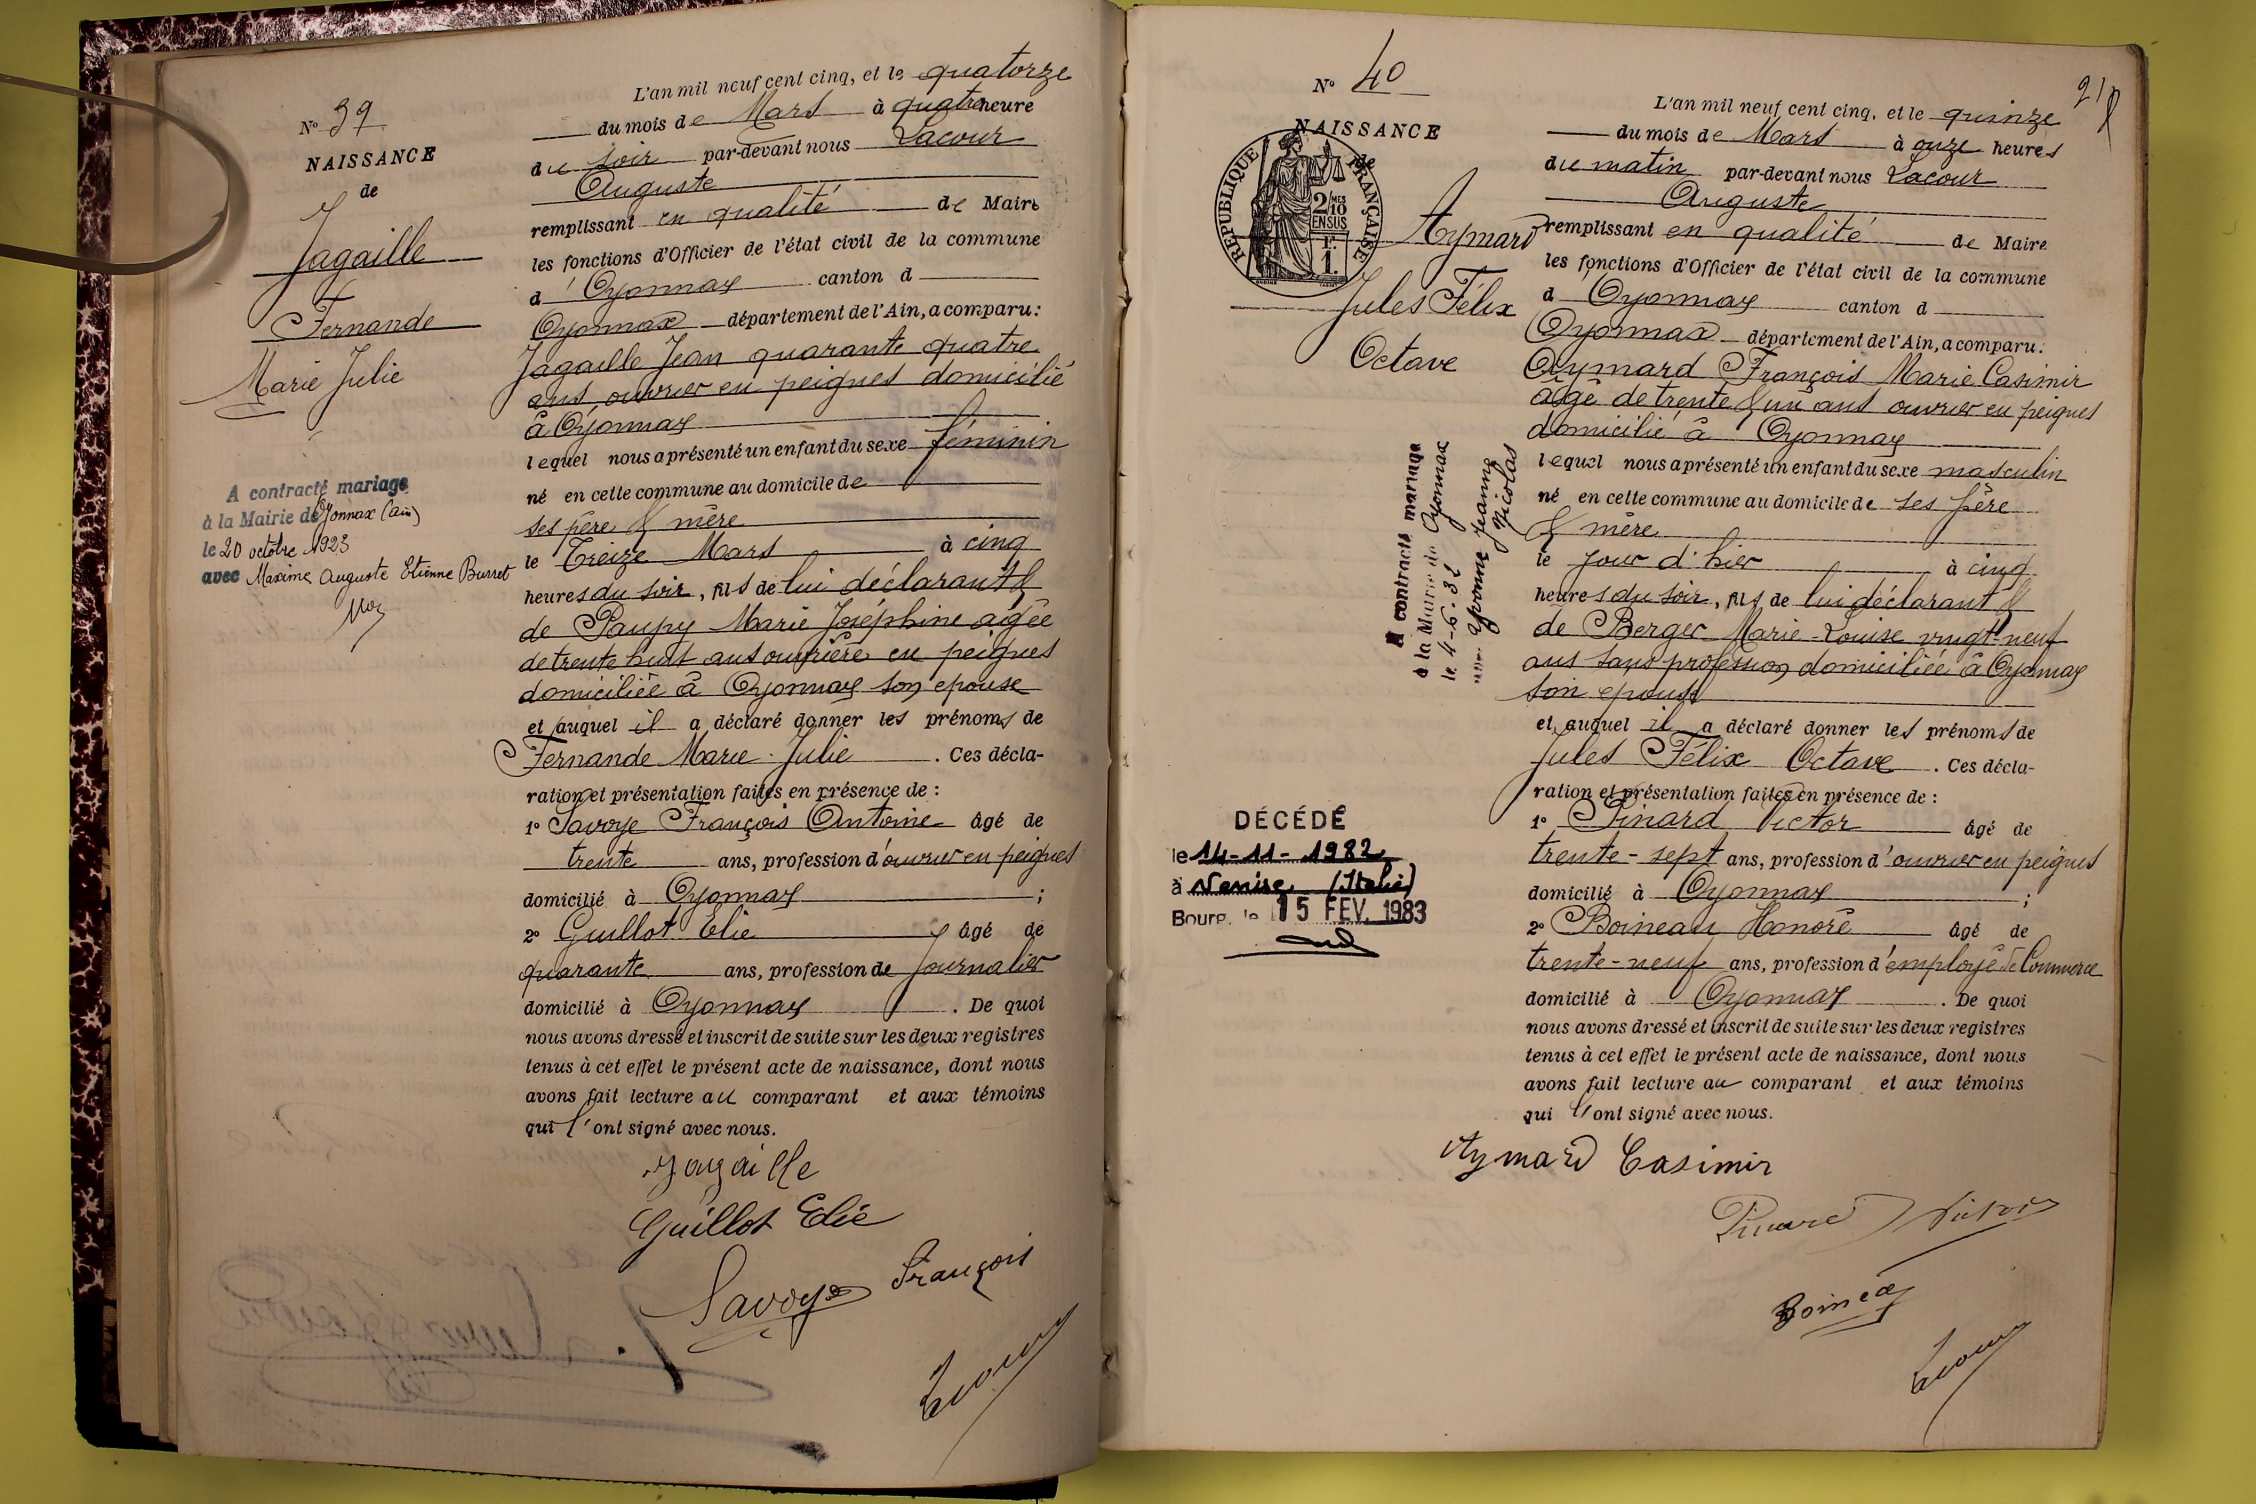 N° 39
NAISSANCE
de
Jagaille
Fernande
Marie Julie
A contracté mariage
à la Mairie de Oyonnax (Ain)
le 20 octobre 1923
avec Maxime Auguste Etienne Burret
L'an mil neuf cent cinq, et le quatorze
du mois de Mars à quatre heure
du soir par-devant nous Lacour
Auguste
remplissant en qualité de Maire
les fonctions d'Officier de l'état civil de la commune
d'Oyonnax canton d
Oyonnax département de l'Ain, a comparu:
Jagaille Jean quarante quatre
ans ouvrier en peignes domicilié
à Oyonnax
lequel nous a présenté un enfant du sexe féminin
né en cette commune au domicile de
ses père & mère
le Treize Mars à cinq
heures du soir, fils de lui déclarant &
de Paupy Marie Joséphine agée
de trente huit ans ouvrière en peignes
domiciliée à Oyonnax son epouse
et auquel il a déclaré donner les prénoms de
Fernande Marie Julie. Ces décla-
ration et présentation faites en présence de :
1° Savoye François Antoine âgé de
trente ans, profession d'ouvrier en peignes
domicilié à Oyonnax ;
2° Guillot Elie âgé de
quarante ans, profession de Journalier
domicilié à Oyonnax. De quoi
nous avons dressé et inscrit de suite sur les deux registres
tenus à cet effet le présent acte de naissance, dont nous
avons fait lecture au comparant et aux témoins
qui l'ont signé avec nous.
Jagaille
Guillot Elie
Savoye François
Lacour
21
N° 40
NAISSANCE
de
REPUBLIQUE FRANÇAISE
2/10 MES
EN SUS
1F.
1.
Aymard
Jules Félix
Octave
A contracté mariage
à la Mairie de Oyonnax
le 4-6-32
avec Yvonne Jeanne
Nicolas
DÉCÉDÉ
le 14-11-1982
à Venise (Italie)
Bourg, le 15 FEV. 1983
L'an mil neuf cent cinq, et le quinze
du mois de Mars à onze heures
du matin par-devant nous Lacour
Auguste
remplissant en qualité de Maire
les fonctions d'Officier de l'état civil de la commune
d Oyonnax canton d
Oyonnax département de l'Ain, a comparu:
Aymard François Marie Casimir
âgé de trente & un ans ouvrier en peignes
domicilié à Oyonnax
lequel nous a présenté un enfant du sexe masculin
né en cette commune au domicile de ses père
& mère
le jour d'hier à cinq
heures du soir, fils de lui déclarant &
de Berger Marie-Louise vingt-neuf
ans sans profession domiciliée à Oyonnax
son epouse
et auquel il a déclaré donner les prénoms de
Jules Félix Octave. Ces décla-
ration et présentation faites en présence de :
1° Pinard Victor âgé de
trente-sept ans, profession d'ouvrier en peignes
domicilié à Oyonnax ;
2° Boineau Honoré âgé de
trente-neuf ans, profession d'employé de Commerce
domicilié à Oyonnax. De quoi
nous avons dressé et inscrit de suite sur les deux registres
tenus à cet effet le présent acte de naissance, dont nous
avons fait lecture au comparant et aux témoins
qui l'ont signé avec nous.
Aymard Casimir
Pinard Victor
Boineau
Lacour